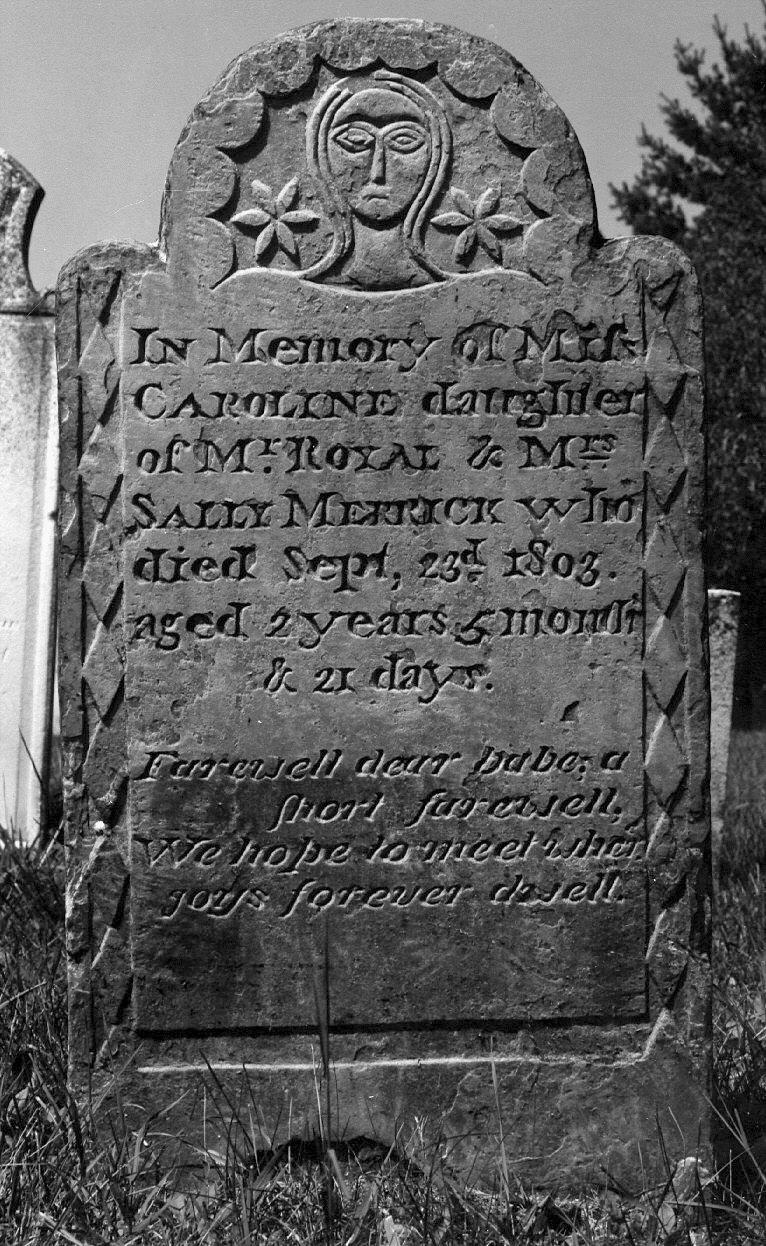 In Memory of Miss
CAROLINE daughter
of Mr. ROYAL & Mrs
SALLY MERRICK who
died Sept, 23d 1803.
aged 2 years 5 month
& 21 days.
Farewell dear babe, a
short farewell,
We hope to meet wher
joys forever dwell.